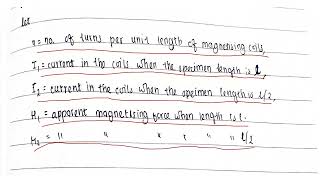 let
n = no. of turns per unit length of magnetising coils.
I₁ = current in the coils when the specimen length is l,
I₂ = current in the coils when the specimen length is l/2,
H₁ = apparent magnetising force when length is l.
H₂ = " " " " " " l/2